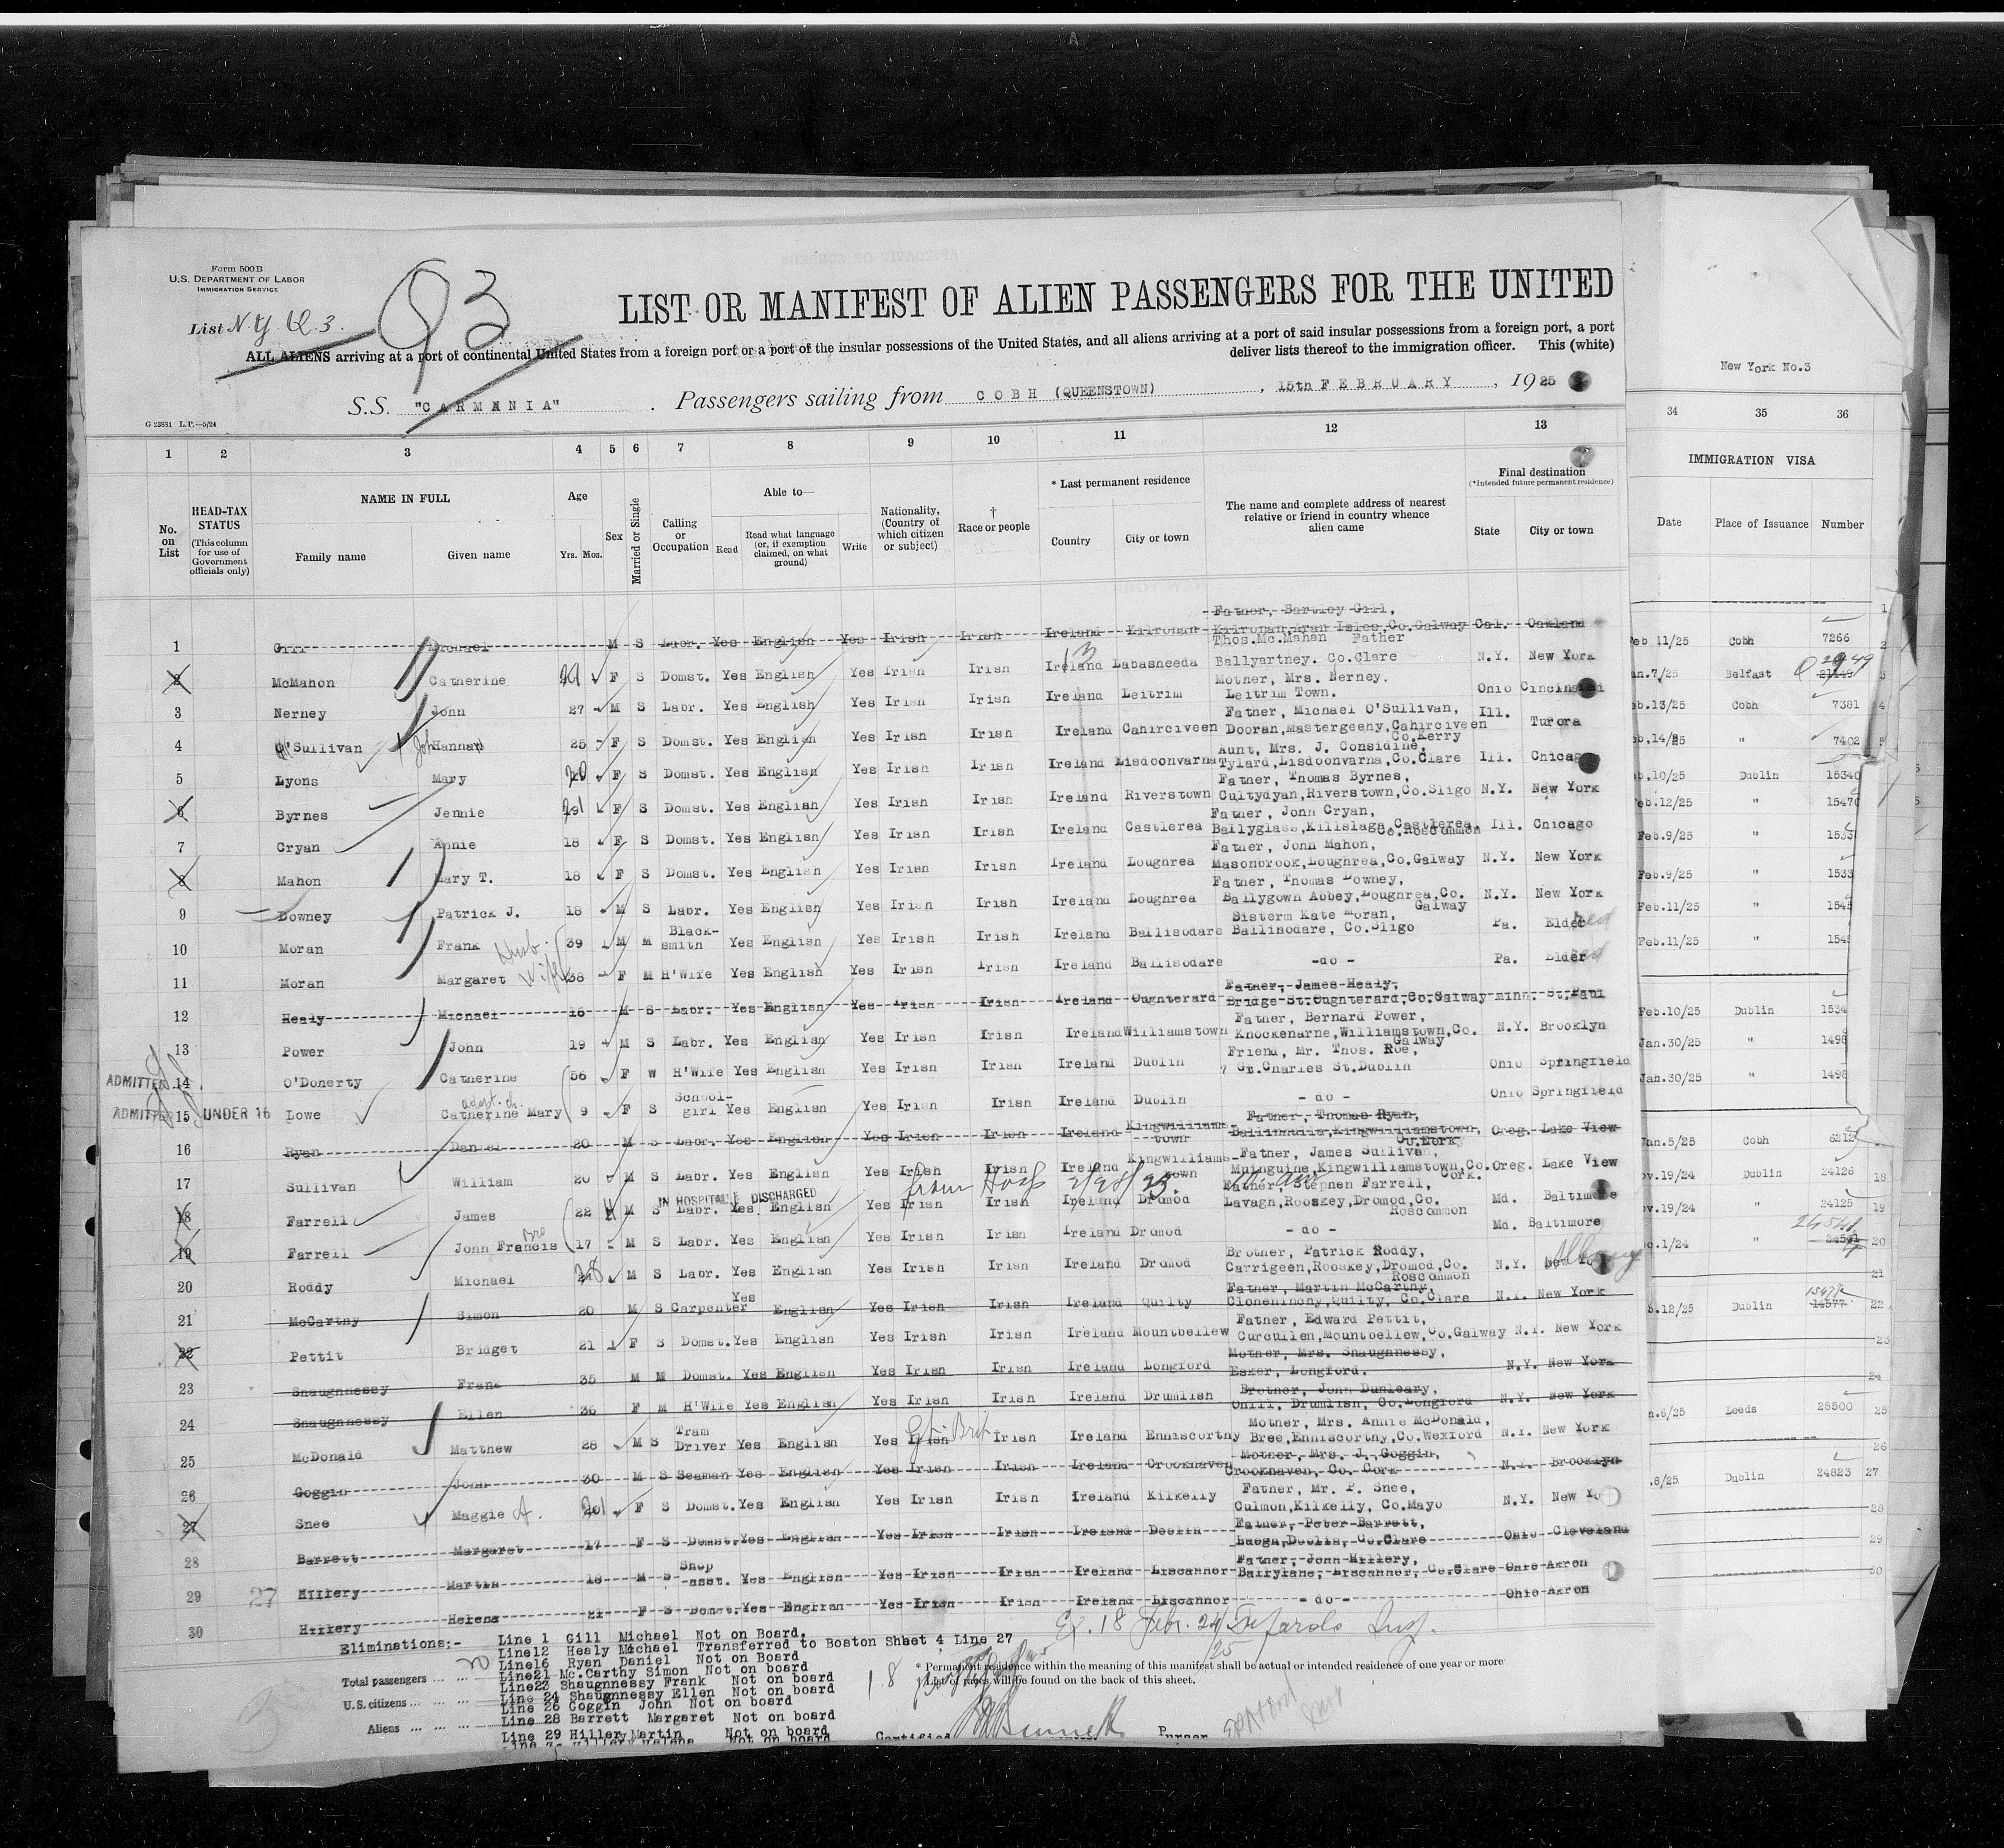 Form 500 B
U.S. DEPARTMENT OF LABOR
IMMIGRATION SERVICE
List N.Y. Q. 3.
Q3
LIST OR MANIFEST OF ALIEN PASSENGERS FOR THE UNITED
ALL ALIENS arriving at a port of continental United States from a foreign port or a port of the insular possessions of the United States, and all aliens arriving at a port of said insular possessions from a foreign port, a port
deliver lists thereof to the immigration officer. This (white)
New York No.3
S.S. "CARMANIA" . Passengers sailing from COBH (QUEENSTOWN) , 15th FEBRUARY , 1925
G 23881 L.P.—5/24
1 2 3 4 5 6 7 8 9 10 11 12 13 34 35 36
No. on List
HEAD-TAX STATUS (This column for use of Government officials only)
NAME IN FULL
Family name Given name
Age
Yrs. Mos.
Sex
Married or Single
Calling or Occupation
Able to—
Read Read what language (or, if exemption claimed, on what ground) Write
Nationality, (Country of which citizen or subject)
† Race or people
* Last permanent residence
Country City or town
The name and complete address of nearest relative or friend in country whence alien came
Final destination
(*Intended future permanent residence)
State City or town
IMMIGRATION VISA
Date Place of Issuance Number
Father, Bartley Gill,
1 Gill Michael M S Labr. Yes English Yes Irish Irish Ireland Kilronan Kilronan,Aran Isles,Co.Galway Cal. Oakland
Thos.Mc.Mahon Father
2 McMahon Catherine F S Domst. Yes English Yes Irish Irish Ireland Labasheeda Ballyartney. Co.Clare N.Y. New York
Feb 11/25 Cobh 7266
Mother, Mrs. Nerney.
3 Nerney John 27 M S Labr. Yes English Yes Irish Irish Ireland Leitrim Leitrim Town. Ohio Cincinnati
an.7/25 Belfast
Father, Michael O'Sullivan,
4 O'Sullivan Hannah 25 F S Domst. Yes English Yes Irish Irish Ireland Cahirciveen Dooran,Mastergeehy,Cahirciveen Co.Kerry Ill. Turora
eb.13/25 Cobh 7381
Aunt, Mrs. J. Considine,
5 Lyons Mary 20 F S Domst. Yes English Yes Irish Irish Ireland Lisdoonvarna Tylard,Lisdoonvarna,Co.Clare Ill. Chicago
eb.14/25 " 7402
Father, Thomas Byrnes,
6 Byrnes Jennie 21 F S Domst. Yes English Yes Irish Irish Ireland Riverstown Cultydyan,Riverstown,Co.Sligo N.Y. New York
eb.10/25 Dublin 15340
Father, John Cryan,
7 Cryan Annie 18 F S Domst. Yes English Yes Irish Irish Ireland Castlerea Ballyglass,Killslage,Castlerea Co.Roscommon Ill. Chicago
Feb.12/25 " 1547
Father, John Mahon,
8 Mahon Mary T. 18 F S Domst. Yes English Yes Irish Irish Ireland Loughrea Masonbrook,Loughrea,Co.Galway N.Y. New York
Feb.9/25 " 1533
Father, Thomas Downey,
9 Downey Patrick J. 18 M S Labr. Yes English Yes Irish Irish Ireland Loughrea Ballygown Abbey,Loughrea,Co. Galway N.Y. New York
Feb.9/25 1533
Sisterm Kate Moran,
10 Moran Frank Husb. 39 M M Black-smith Yes English Yes Irish Irish Ireland Ballisodare Ballinodare, Co.Sligo Pa. Elder
Feb.11/25 " 1545
11 Moran Margaret Wife 38 F M H'Wife Yes English Yes Irish Irish Ireland Ballisodare -do- Pa. Elder
Feb.11/25 " 154
Father, James Healy,
12 Healy Michael 16 M S Labr. Yes English Yes Irish Irish Ireland Oughterard Bridge St.Oughterard,Co.Galway Minn. St.Paul
Father, Bernard Power,
13 Power John 19 M S Labr. Yes English Yes Irish Irish Ireland Williamstown Knockenarne,Williamstown,Co. Galway N.Y. Brooklyn
Feb.10/25 Dublin 1534
Friend, Mr. Thos. Roe,
ADMITTED 14 O'Doherty Catherine 56 F W H'Wife Yes English Yes Irish Irish Ireland Dublin 7 Gt.Charles St.Dublin Ohio Springfield
Jan.30/25 " 1498
ADMITTED 15 UNDER 16 Lowe Catherine Mary adopt. ch. 9 F S School-girl Yes English Yes Irish Irish Ireland Dublin - do - Ohio Springfield
Jan.30/25 1498
Father, Thomas Ryan,
16 Ryan Daniel 20 M S Labr. Yes English Yes Irish Irish Ireland Kingwilliams-town Ballinahla,Kingwilliamstown, Co.Cork Oreg. Lake View
Father, James Sullivan,
17 Sullivan William 20 M S Labr. Yes English Yes Irish Irish Ireland Kingwilliams-town Muinguine,Kingwilliamstown,Co. Cork. Oreg. Lake View
Jan.5/25 Cobh 6212
IN HOSPITAL DISCHARGED from Hosp 2/28/25.
Father, Stephen Farrell,
18 Farrell James 22 M S Labr. Yes English Yes Irish Irish Ireland Dromod Lavagh,Rooskey,Dromod,Co. Roscommon Md. Baltimore
ov.19/24 Dublin 24126
19 Farrell John Francis Bro 17 M S Labr. Yes English Yes Irish Irish Ireland Dromod - do - Md. Baltimore
ov.19/24 " 24125
Brother, Patrick Roddy,
20 Roddy Michael 28 M S Labr. Yes English Yes Irish Irish Ireland Dromod Carrigeen,Rooskey,Dromod,Co. Roscommon N.Y. New Yo Albany
c.1/24 "
Father, Martin McCarthy,
21 McCarthy Simon 20 M S Carpenter Yes English Yes Irish Irish Ireland Quilty Cloneninchy,Quilty, Co.Clare N.Y. New York
Father, Edward Pettit,
22 Pettit Bridget 21 F S Domst. Yes English Yes Irish Irish Ireland Mountbellew Curcullen,Mountbellew,Co.Galway N.Y. New York
.12/25 Dublin 14577
Mother, Mrs. Shaughnessy,
23 Shaughnessy Frank 35 M M Domst. Yes English Yes Irish Irish Ireland Longford Esker, Longford. N.Y. New York
Brother, John Dunleary,
24 Shaughnessy Ellen 36 F M H'Wife Yes English Yes Irish Irish Ireland Drumlish Ohill, Drumlish, Co.Longford N.Y. New York
Mother, Mrs. Annie McDonald,
25 McDonald Matthew 28 M S Tram Driver Yes English Yes Irish Gt. Brit. Irish Ireland Enniscorthy Bree,Enniscorthy,Co.Wexford N.Y. New York
n.6/25 Leeds 28500
Mother, Mrs. J. Goggin,
26 Goggin John 30 M S Seaman Yes English Yes Irish Irish Ireland Crookhaven Crookhaven, Co. Cork N.Y. Brooklyn
Father, Mr. P. Snee,
27 Snee Maggie A. 20 F S Domst. Yes English Yes Irish Irish Ireland Kilkelly Culmon,Kilkelly, Co.Mayo N.Y. New Yo
.8/25 Dublin 24823
Father, Peter Barrett,
28 Barrett Margaret 17 F S Domst. Yes English Yes Irish Irish Ireland Doolin Luogh,Doolin, Co.Clare Ohio Cleveland
Father, John Hillery,
29 Hillery Martin 18 M S Shop -asst. Yes English Yes Irish Irish Ireland Liscannor Ballylane, Liscannor, Co.Clare Ohio Akron
30 Hillery Helena 21 F S Domst. Yes English Yes Irish Irish Ireland Liscannor - do - Ohio Akron
27
Eliminations:- Line 1 Gill Michael Not on Board.
Line12 Healy Michael Transferred to Boston Sheet 4 Line 27
Line16 Ryan Daniel Not on Board
Line21 Mc.Carthy Simon Not on board
Line23 Shaugnnessy Frank Not on board
Line 24 Shaugnnessy Ellen Not on board
Line 26 Goggin John Not on board
Line 28 Barrett Margaret Not on board
Line 29 Hillery Martin Not on board
Hillery Helena Not on board
Total passengers
U.S. citizens
Aliens
* Permanent residence within the meaning of this manifest shall be actual or intended residence of one year or more
† List of races will be found on the back of this sheet.
Certified
Purser